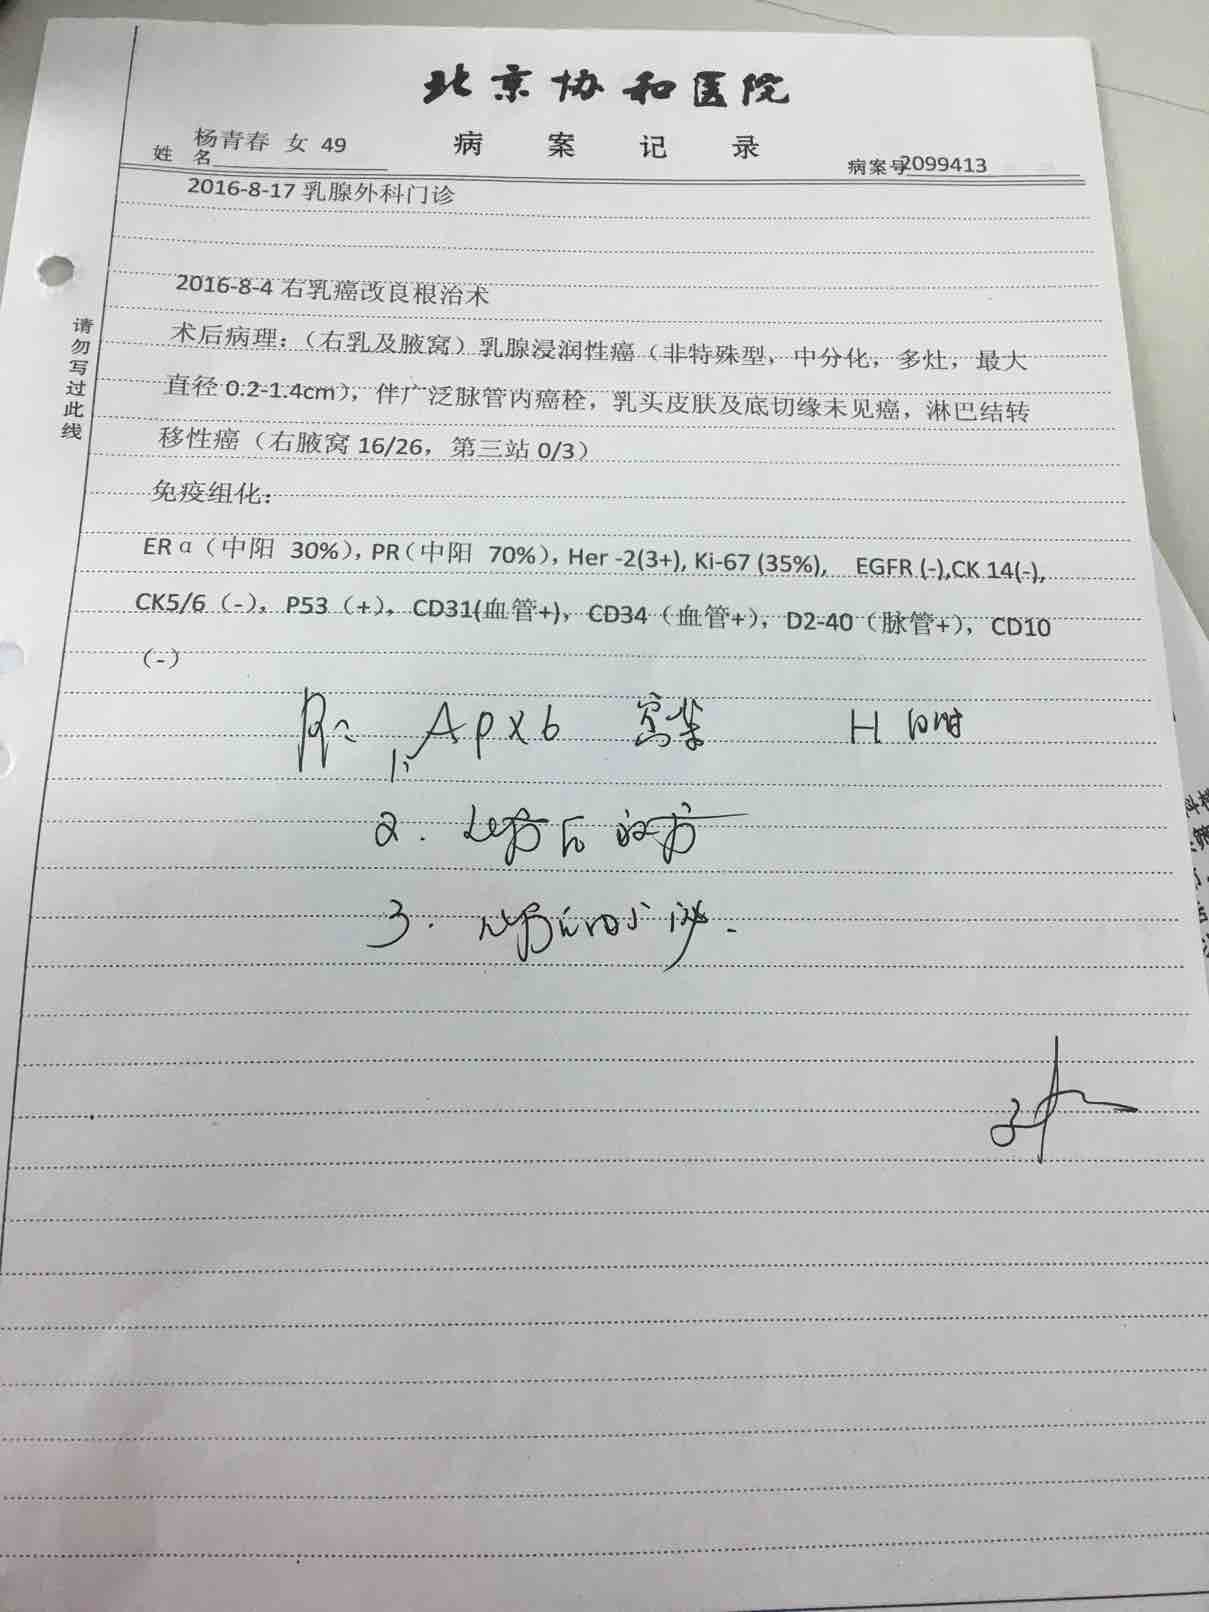 北京协和医院
病案记录
姓名 杨青春 女 49
病案号2099413
2016-8-17 乳腺外科门诊
2016-8-4 右乳癌改良根治术
术后病理：（右乳及腋窝）乳腺浸润性癌（非特殊型，中分化，多灶，最大
直径 0.2-1.4cm），伴广泛脉管内癌栓，乳头皮肤及底切缘未见癌，淋巴结转
移性癌（右腋窝 16/26，第三站 0/3）
免疫组化：
ERα（中阳 30%），PR（中阳 70%），Her -2(3+), Ki-67 (35%), EGFR (-),CK 14(-),
CK5/6（-），P53（+），CD31(血管+)，CD34（血管+），D2-40（脉管+），CD10
（-）
请勿写过此线
1. AP×6 H 同时
2. 化疗后放疗
3. 化疗后内分泌.